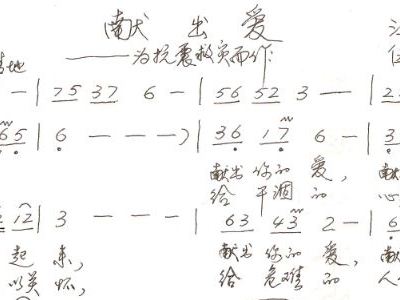 献出爱
——为抗震救灾而作
情地
— | 75 37 6 — | 56 52 3 — | 2
65 | 6 — — — ) | 36 17 6 — | 3
献出 你的 爱， 献
给 干涸 的 心
12 | 3 — — — | 63 43 2 — | 6
起 来， 献出 你的 爱， 献
以关 怀， 给 危难 的 人